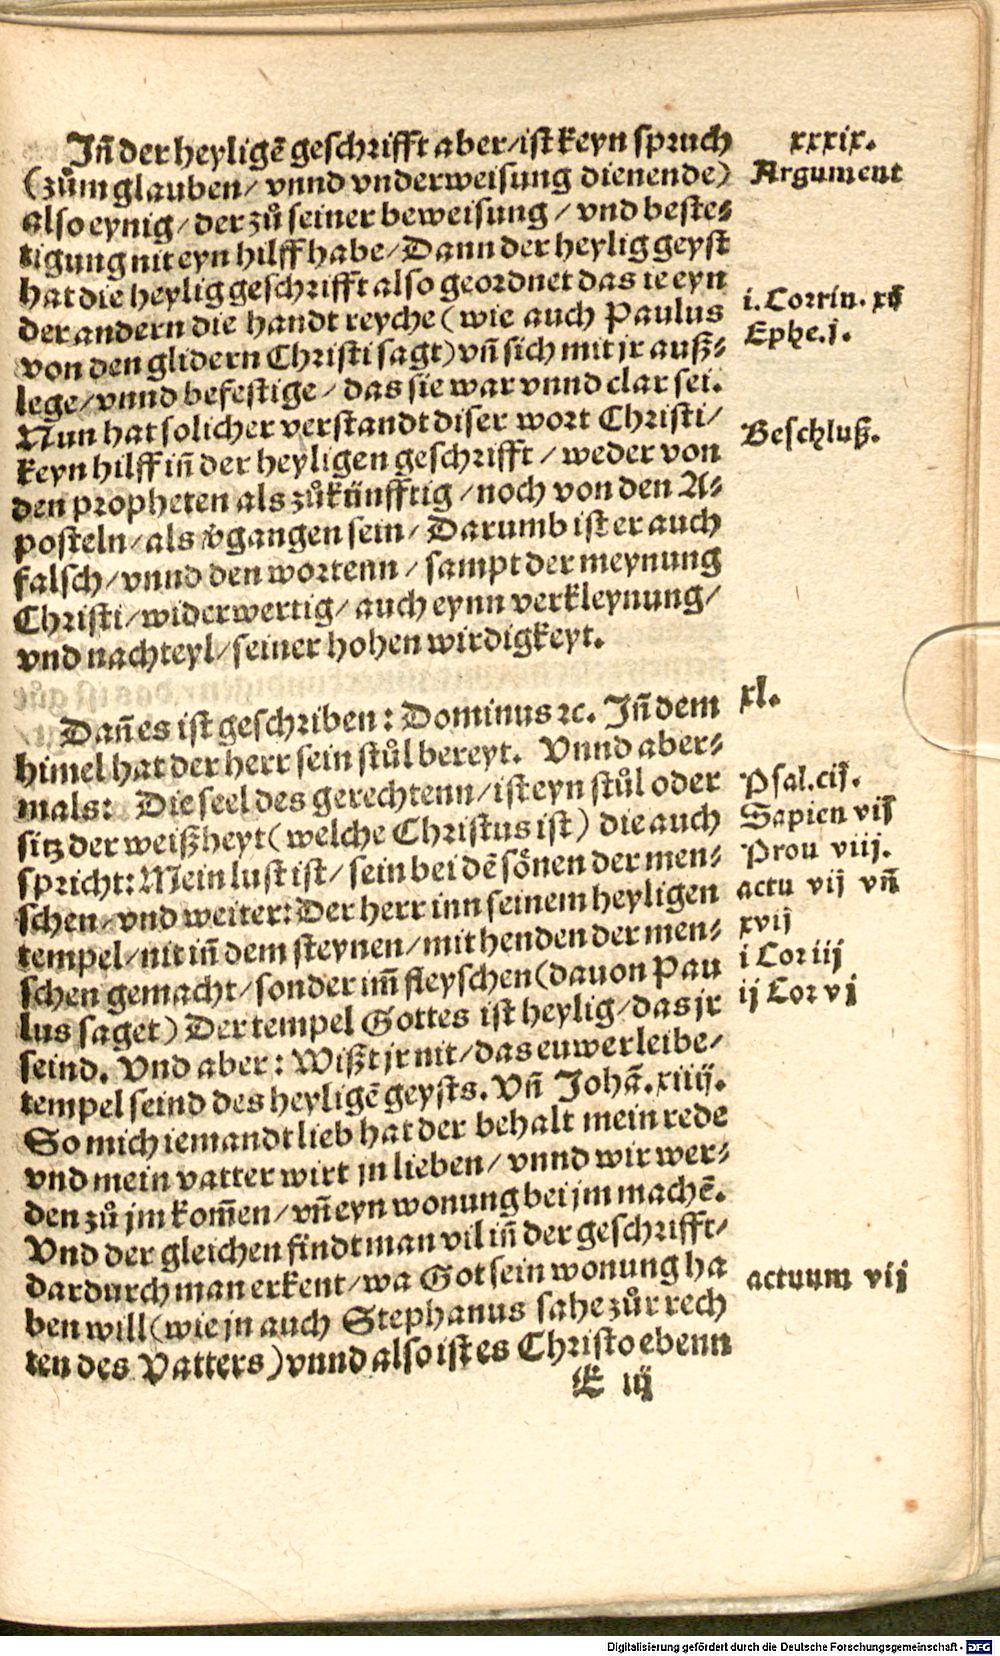 Iñ der heyligẽ geschrifft aber/ ist keyn spruch
(zům glauben/ vnnd vnderweisung dienende)
also eynig/ der zů seiner beweisung/ vnd beste-
tigung nit eyn hilff habe/ Dann der heylig geyst
hat die heylig geschrifft also geordnet das ie eyn
der andern die handt reyche (wie auch Paulus
von den glidern Christi sagt) vñ sich mit jr auß-
lege/ vnnd befestige/ das sie war vnnd clar sei.
Nun hat solicher verstandt diser wort Christi/
keyn hilff iñ der heyligen geschrifft/ weder von
den propheten als zůkünfftig/ noch von den A-
posteln/ als v̈gangen sein/ Darumb ist er auch
falsch/ vnnd den wortenn/ sampt der meynung
Christi/ widerwertig/ auch eynn verkleynung/
vnd nachteyl/ seiner hohen wirdigkeyt.
xxxix.
Argument
i. Corrin. xij
Ephe. j.
Beschluß.
Dañ es ist geschriben: Dominus ꝛc. Iñ dem
himel hat der herr sein stůl bereyt. Vnnd aber-
mals: Die seel des gerechtenn/ ist eyn stůl oder
sitz der weißheyt (welche Christus ist) die auch
spricht: Mein lust ist/ sein bei dẽ sönen der men-
schen/ vnd weiter: Der herr inn seinem heyligen
tempel/ nit iñ dem steynen/ mit henden der men-
schen gemacht/ sonder im̃ fleyschen (dauon Pau
lus saget) Der tempel Gottes ist heylig/ das jr
seind. Vnd aber: Wißt jr nit/ das euwer leibe/
tempel seind des heyligẽ geysts. Vñ Johã. xiiij.
So mich iemandt lieb hat der behalt mein rede
vnd mein vatter wirt jn lieben/ vnnd wir wer-
den zů jm kom̃en/ vñ eyn wonung bei jm machẽ.
Vnd der gleichen findt man vil iñ der geschrifft/
dardurch man erkent/ wa Got sein wonung ha
ben will (wie jn auch Stephanus sahe zůr rech
ten des Vatters) vnnd also ist es Christo ebenn
xl.
Psal. cij.
Sapien vij
Prou viij.
actu vij vñ
xvij
i Cor iij
ij Cor vj
actuum vij
E iij
Digitalisierung gefördert durch die Deutsche Forschungsgemeinschaft - DFG